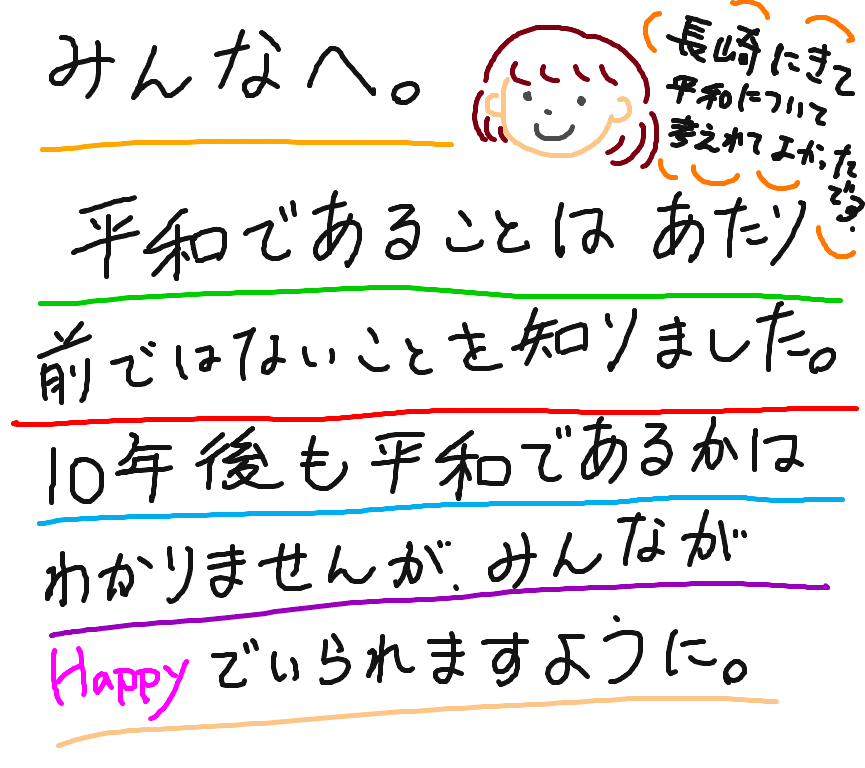 みんなへ。
長崎にきて
平和について
考えれてよかった
です。
平和であることはあたり
前ではないことを知りました。
10年後も平和であるかは
わかりませんが、みんなが
Happyでいられますように。